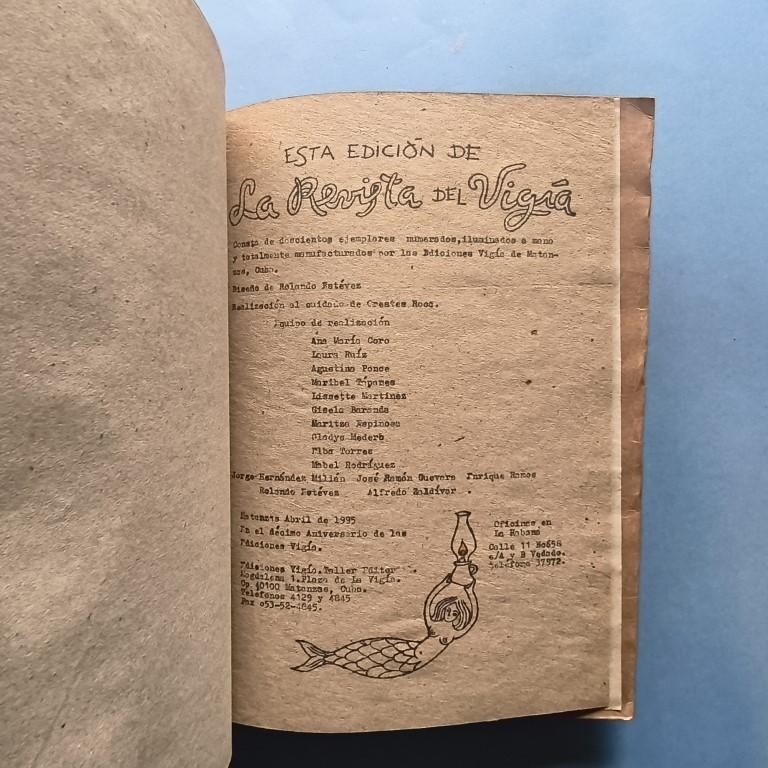 ESTA EDICIÓN DE
La Revista DEL Vigía
Consta de doscientos ejemplares numerados,iluminados a mano
y totalmente manufacturados por las Ediciones Vigía de Matan-
zas, Cuba.
Diseño de Rolando Estévez
Realización al cuidado de Orestes Roca.
Equipo de realización
Ana María Coro
Laura Ruíz
Agustina Ponce
Maribel Tápanes
Lissette Martínez
Gisela Baranda
Maritza Espinosa
Gladys Mederb
Elba Torres
Mabel Rodríguez
Jorge Hernández Milián José Ramón Guevara Enrique Ramos
Rolando Estévez Alfredo Zaldívar .
Matanzas Abril de 1995
En el décimo Aniversario de las
Ediciones Vigía.
Oficinas en
La Habana
Calle 11 No658
e/A y B Vedado.
teléfono 37972.
Ediciones Vigía.Taller Editor .
Magdalena 1.Plaza de La Vigía.
Cp 40100 Matanzas, Cuba.
Telefonos 4129 y 4845
Fax 053-52-4845.